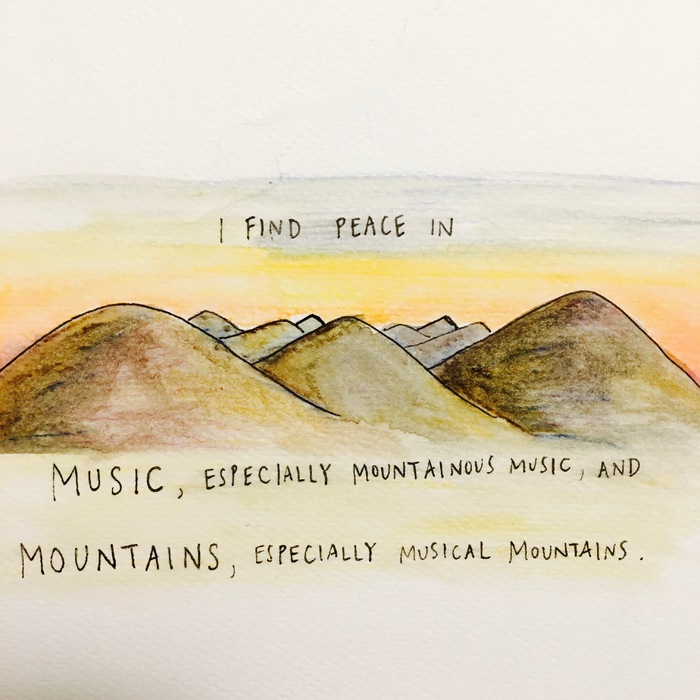 I FIND PEACE IN
MUSIC, ESPECIALLY MOUNTAINOUS MUSIC, AND
MOUNTAINS, ESPECIALLY MUSICAL MOUNTAINS.